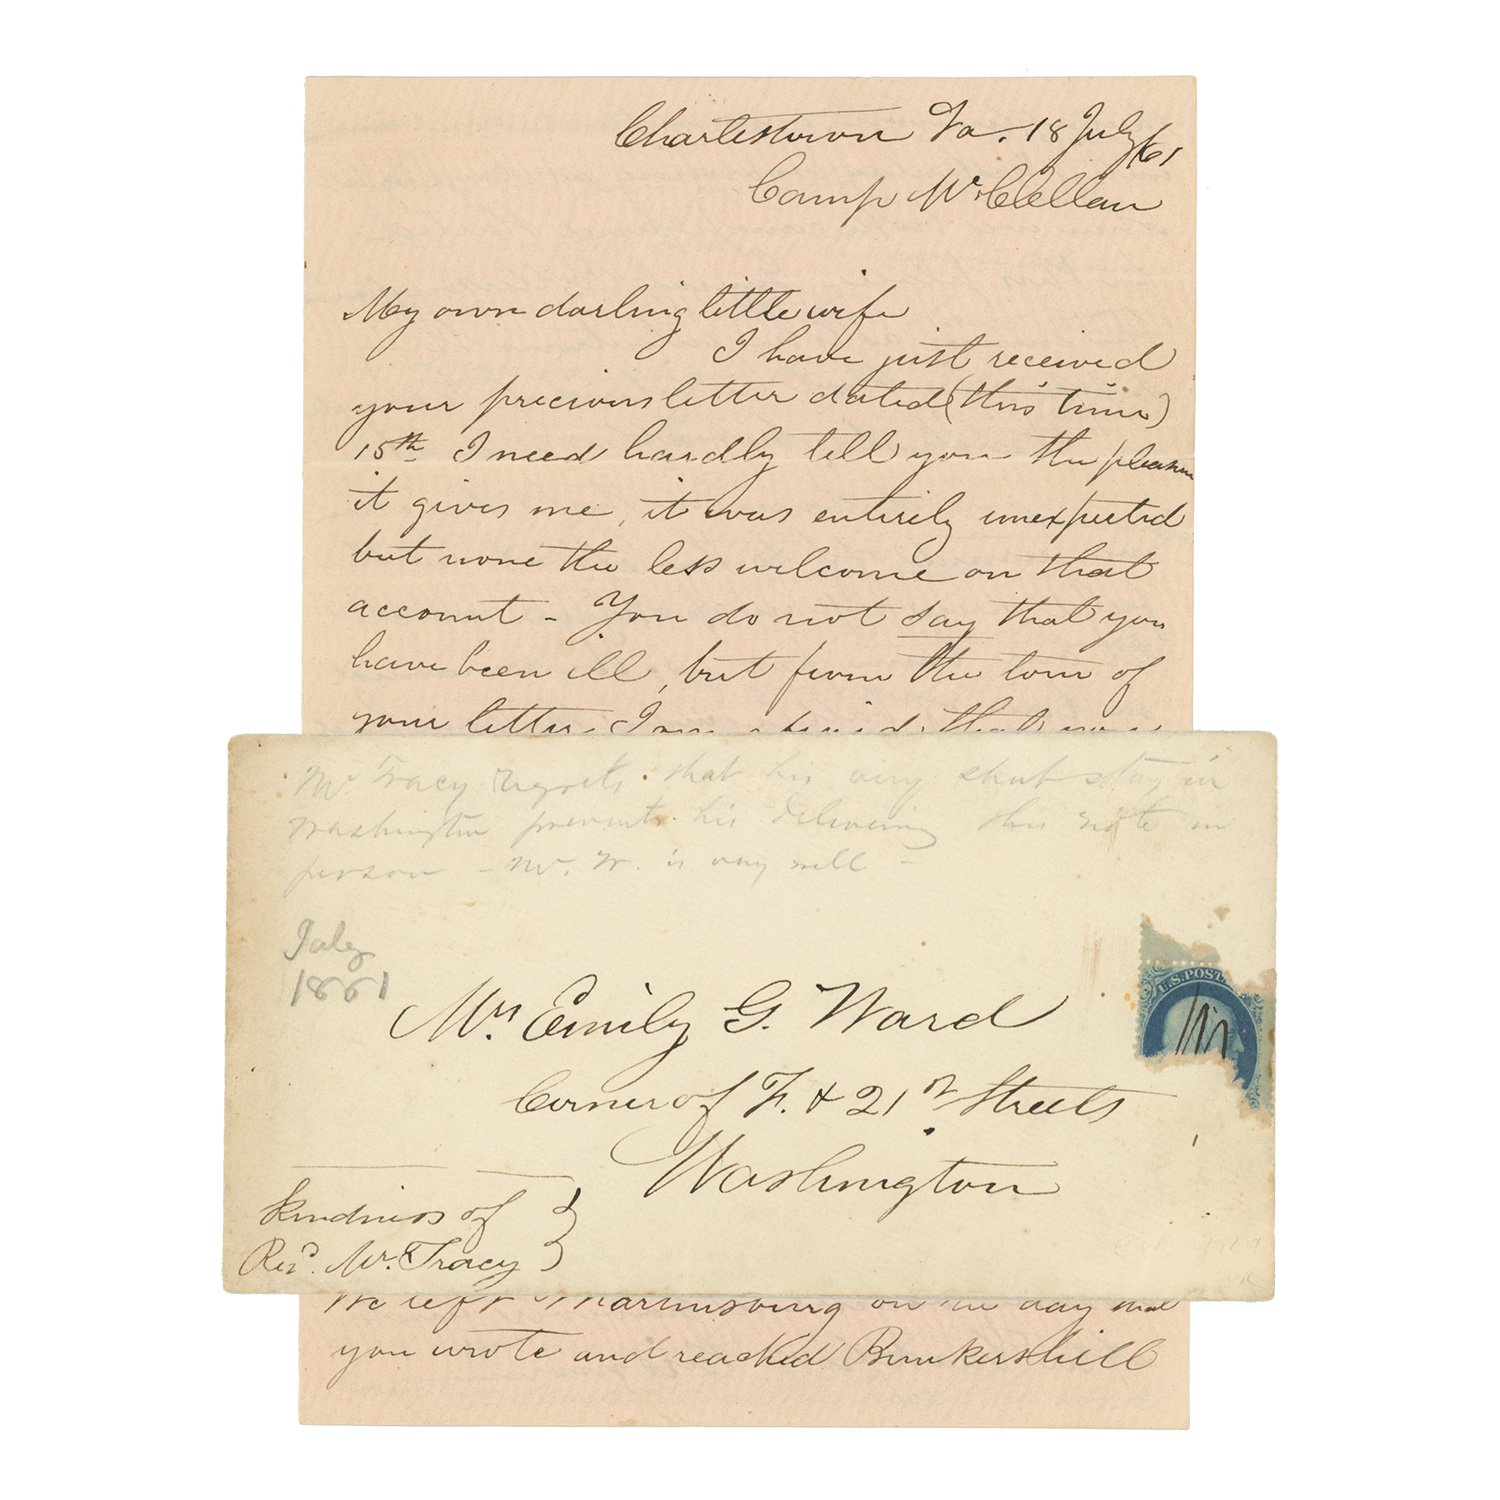 Charlestown Va. 18 July/61
Camp McClellan
My own darling little wife
I have just received
your precious letter dated (this time)
15th I need hardly tell you the pleasure
it gives me, it was entirely unexpected
but none the less welcome on that
account - You do not say that you
have been ill, but from the tone of
your letter I am afraid that
Mr Tracy regrets that his very short stay in
Washington prevents his delivering this note in
person - Mr. W. is very well -
July
1861
U.S. POST
Mrs Emily G. Ward
Corner of F. & 21st Streets
Washington
Kindness of
Revd. Mr. Tracy
We left Martinsburg on the day that
you wrote and reached Bunkershill